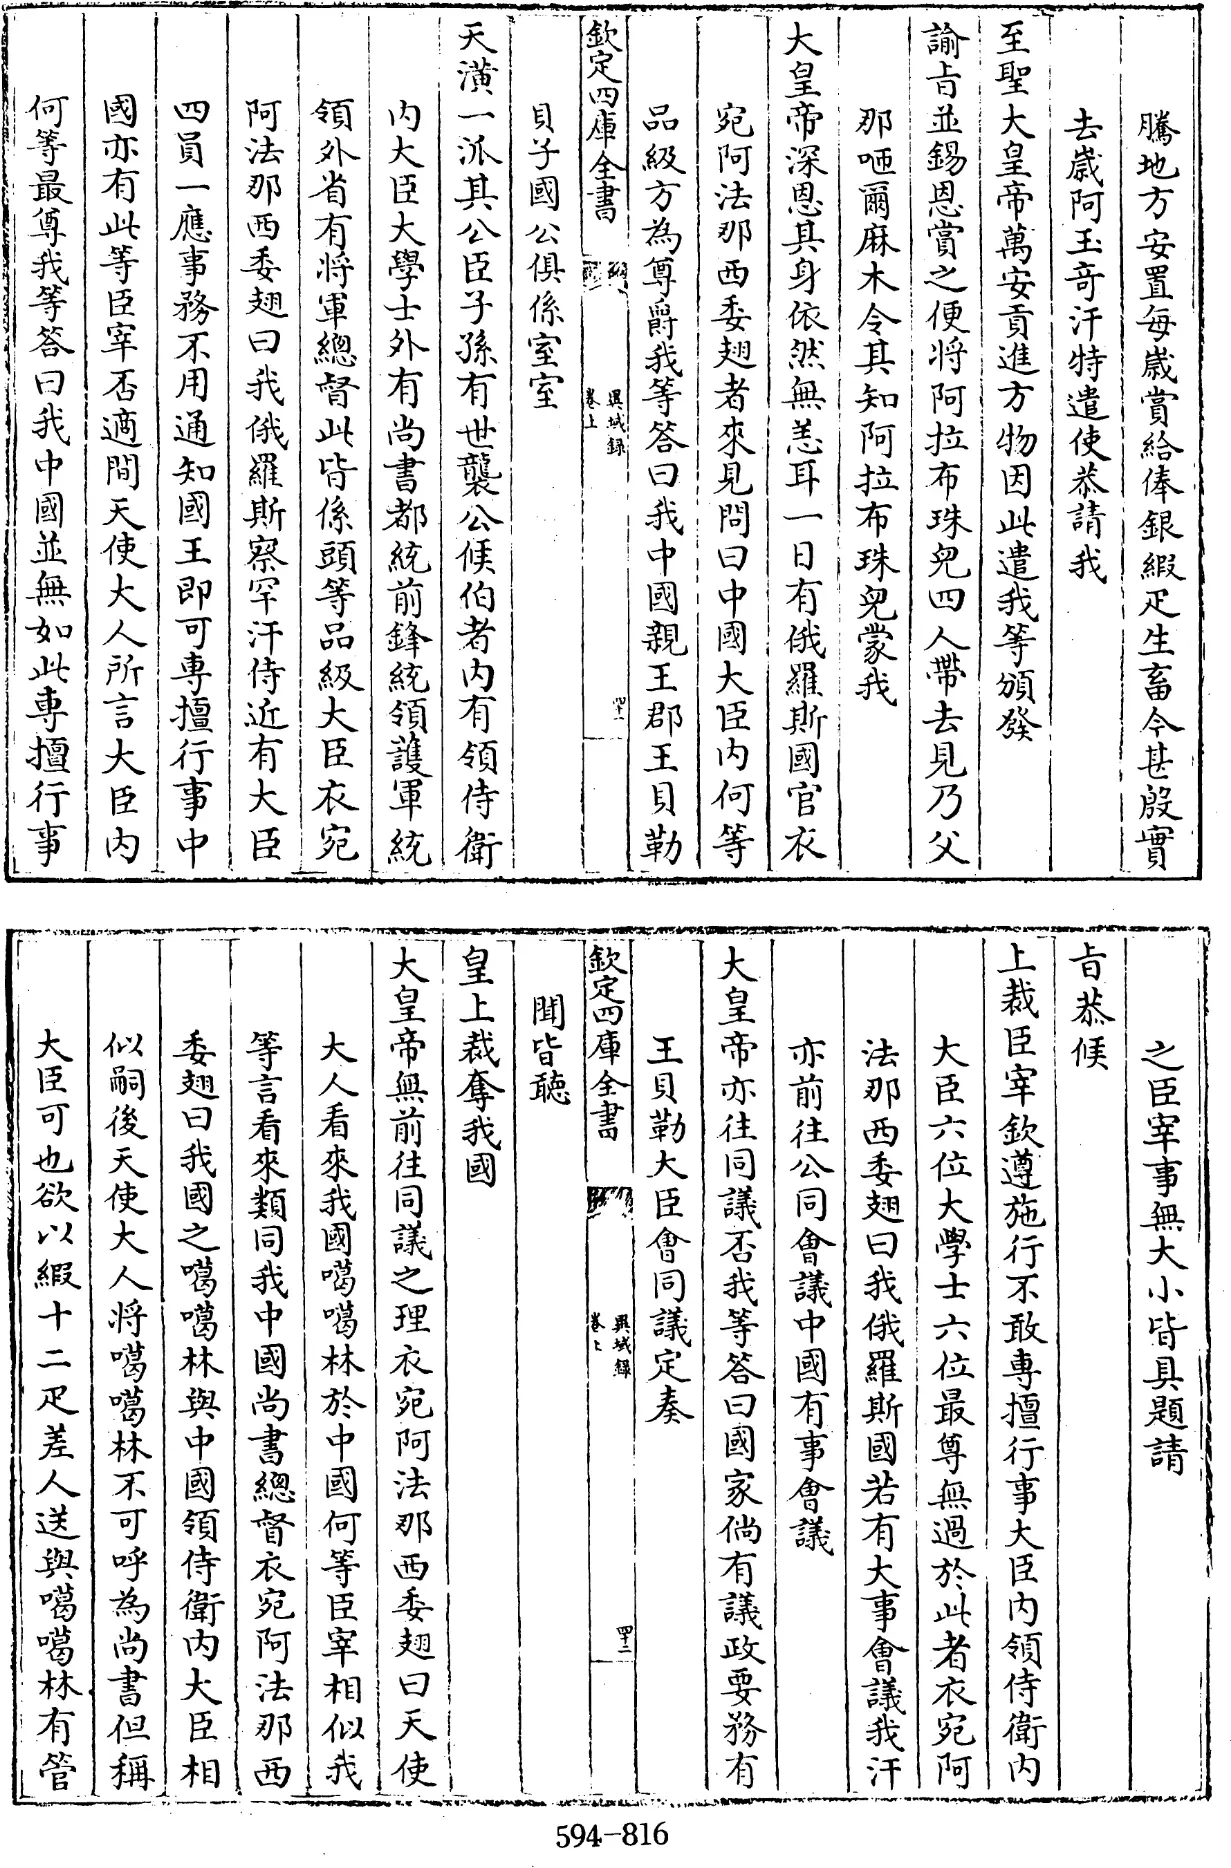 騰地方安置每嵗賞給俸銀緞疋生畜今甚殷實
去嵗阿玉竒汗特遣使恭請我
至聖大皇帝萬安貢進方物因此遣我等頒發
諭㫖並錫恩賞之便將阿拉布珠兒四人帶去見乃父
那咂爾麻木令其知阿拉布珠兒蒙我
大皇帝深恩其身依然無恙耳一日有俄羅斯國官衣
宛阿法那西委翅者來見問曰中國大臣内何等
品級方為尊爵我等答曰我中國親王郡王貝勒
欽定四庫全書
異域録
卷上
四十一
貝子國公俱係室室
天潢一派其公臣子孫有世襲公候伯者内有領侍衛
内大臣大學士外有尚書都統前鋒統領護軍統
領外省有將軍總督此皆係頭等品級大臣衣宛
阿法那西委翅曰我俄羅斯察罕汗侍近有大臣
四員一應事務不用通知國王即可專擅行事中
國亦有此等臣宰否適間天使大人所言大臣内
何等最尊我等答曰我中國並無如此專擅行事
之臣宰事無大小皆具題請
㫖恭候
上裁臣宰欽遵施行不敢專擅行事大臣内領侍衛内
大臣六位大學士六位最尊無過於此者衣宛阿
法那西委翅曰我俄羅斯國若有大事會議我汗
亦前往公同會議中國有事會議
大皇帝亦往同議否我等答曰國家倘有議政要務有
王貝勒大臣會同議定奏
欽定四庫全書
異域録
卷上
四十二
聞皆聽
皇上裁奪我國
大皇帝無前往同議之理衣宛阿法那西委翅曰天使
大人看來我國噶噶林於中國何等臣宰相似我
等言看來類同我中國尚書總督衣宛阿法那西
委翅曰我國之噶噶林與中國領侍衛内大臣相
似嗣後天使大人將噶噶林不可呼為尚書但稱
大臣可也欲以緞十二疋差人送與噶噶林有管
594-816